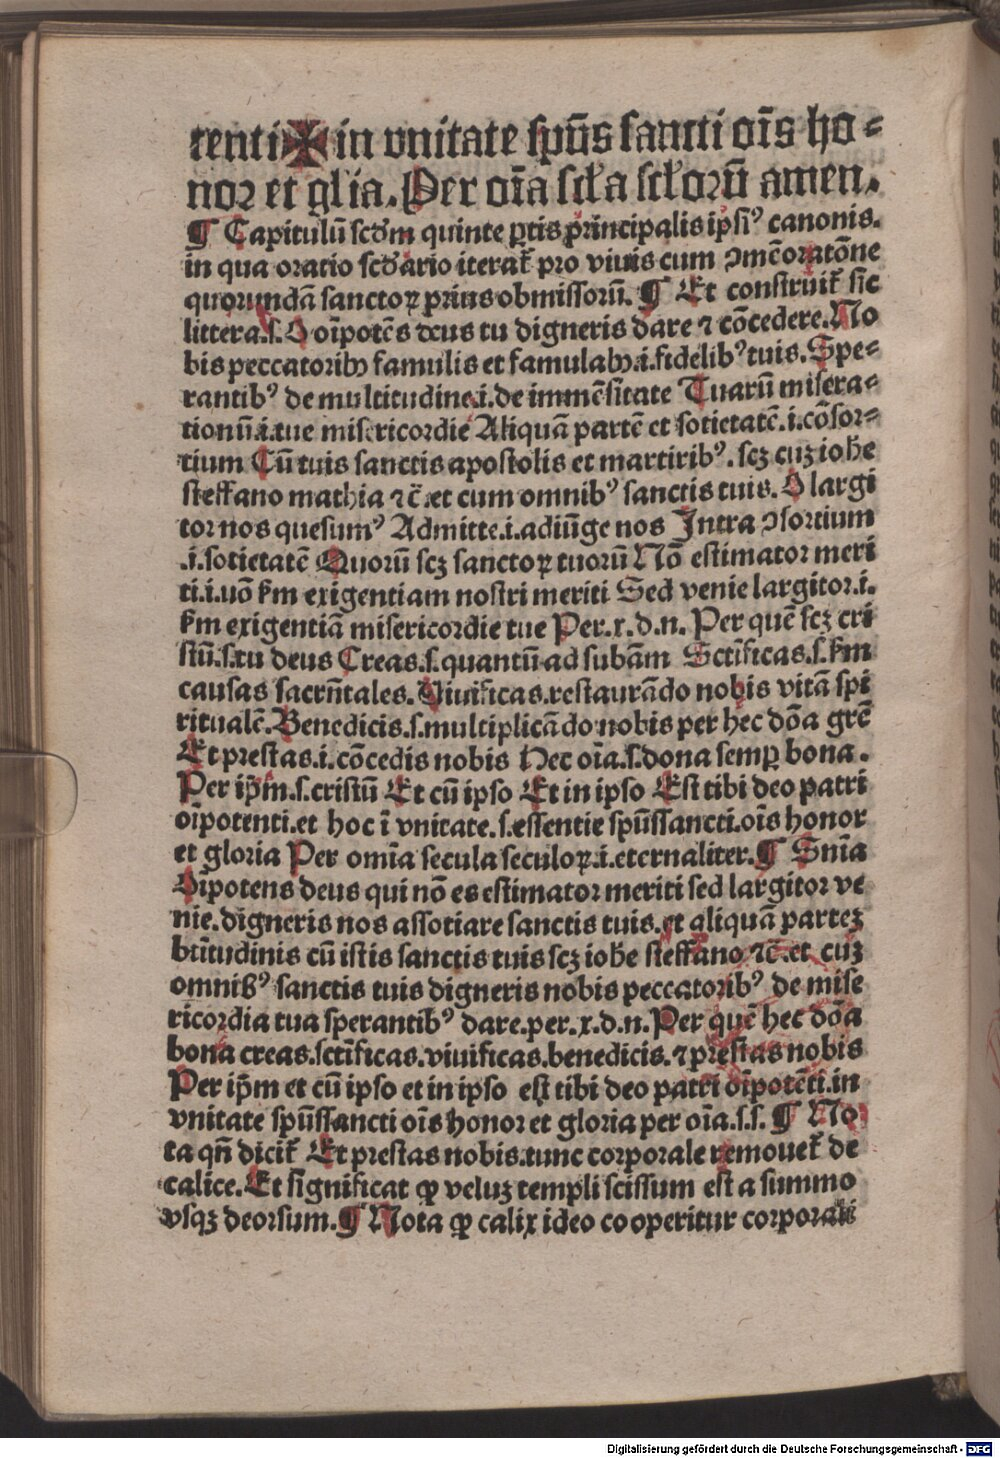 tenti ✠ in vnitate spūs sancti oīs ho⸗
nor et glīa. Per oīa scła scłorū amen.
¶ Capitulū scdm quinte ꝑtis principalis ipsiꝰ canonis.
in qua oratio scdario iterat᷑ pro viuis cum ꝯmēoratōne
quorundā sanctoꝝ prius obmissorū. ¶ Et construit᷑ sic
littera.s. O oīpotēs deus tu digneris dare ⁊ cōcedere. No
bis peccatoribꝫ famulis et famulabꝫ.i.fidelibꝰ tuis. Spe⸗
rantibꝰ de multitudine.i.de immēsitate Tuarū misera⸗
tionū.i.tue misericordie Aliquā partē et sotietatē.i.cōsor⸗
tium Cū tuis sanctis apostolis et martiribꝰ. scꝫ cuꝫ iohē
steffano mathia ⁊c̄.et cum omnibꝰ sanctis tuis. O largi
tor nos quesumꝰ Admitte.i.adiūge nos Intra ꝯsortium
.i.sotietatē Quorū scꝫ sanctoꝝ tuorū Nō estimator meri
ti.i.nō km exigentiam nostri meriti Sed venie largitor.i.
km exigentiā misericordie tue Per.x.d.n. Per quē scꝫ cri
stū.s.tu deus Creas.s.quantū ad subām Sctīficas.s.km
causas sacrn̄tales. Viuificas.restaurādo nobis vitā spi
ritualē. Benedicis.s.multiplicādo nobis per hec dōa grē
Et prestas.i.cōcedis nobis Hec oīa.s.dona semꝑ bona.
Per ip̄m.s.cristū Et cū ipso Et in ipso Est tibi deo patri
oīpotenti.et hoc ī vnitate.s.essentie spūssancti.oīs honor
et gloria Per omīa secula seculoꝝ.i.eternaliter. ¶ Snīa
Oīpotens deus qui nō es estimator meriti sed largitor ve
nie.digneris nos assotiare sanctis tuis.et aliquā parteꝫ
btītudinis cū istis sanctis tuis scꝫ iohē steffano ⁊c̄.et cuꝫ
omnibꝰ sanctis tuis digneris nobis peccatoribꝰ de mise
ricordia tua sperantibꝰ dare.per.x.d.n. Per quē hec dōa
bona creas.sctīficas.viuificas.benedicis.⁊ prestas nobis
Per ip̄m et cū ipso et in ipso est tibi deo patri oīpotēti.in
vnitate spūssancti oīs honor et gloria per oīa.s.s. ¶ No
ta qn̄ dicit᷑ Et prestas nobis.tunc corporale remouet᷑ de
calice. Et significat ꝙ veluꝫ templi scissum est a summo
vsqꝫ deorsum. ¶ Nota ꝙ calix ideo cooperitur corporali
Digitalisierung gefördert durch die Deutsche Forschungsgemeinschaft - DFG